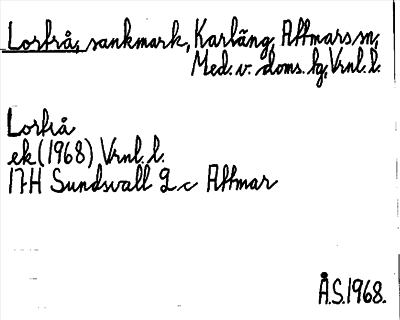 Lorfrå, sankmark, Karläng, Attmars sn,
Med. v. doms. hg, Vrnl. l.
Lorfrå
ek (1968) Vrnl. l.
17H Sundsvall 9 c Attmar
Å.S. 1968.